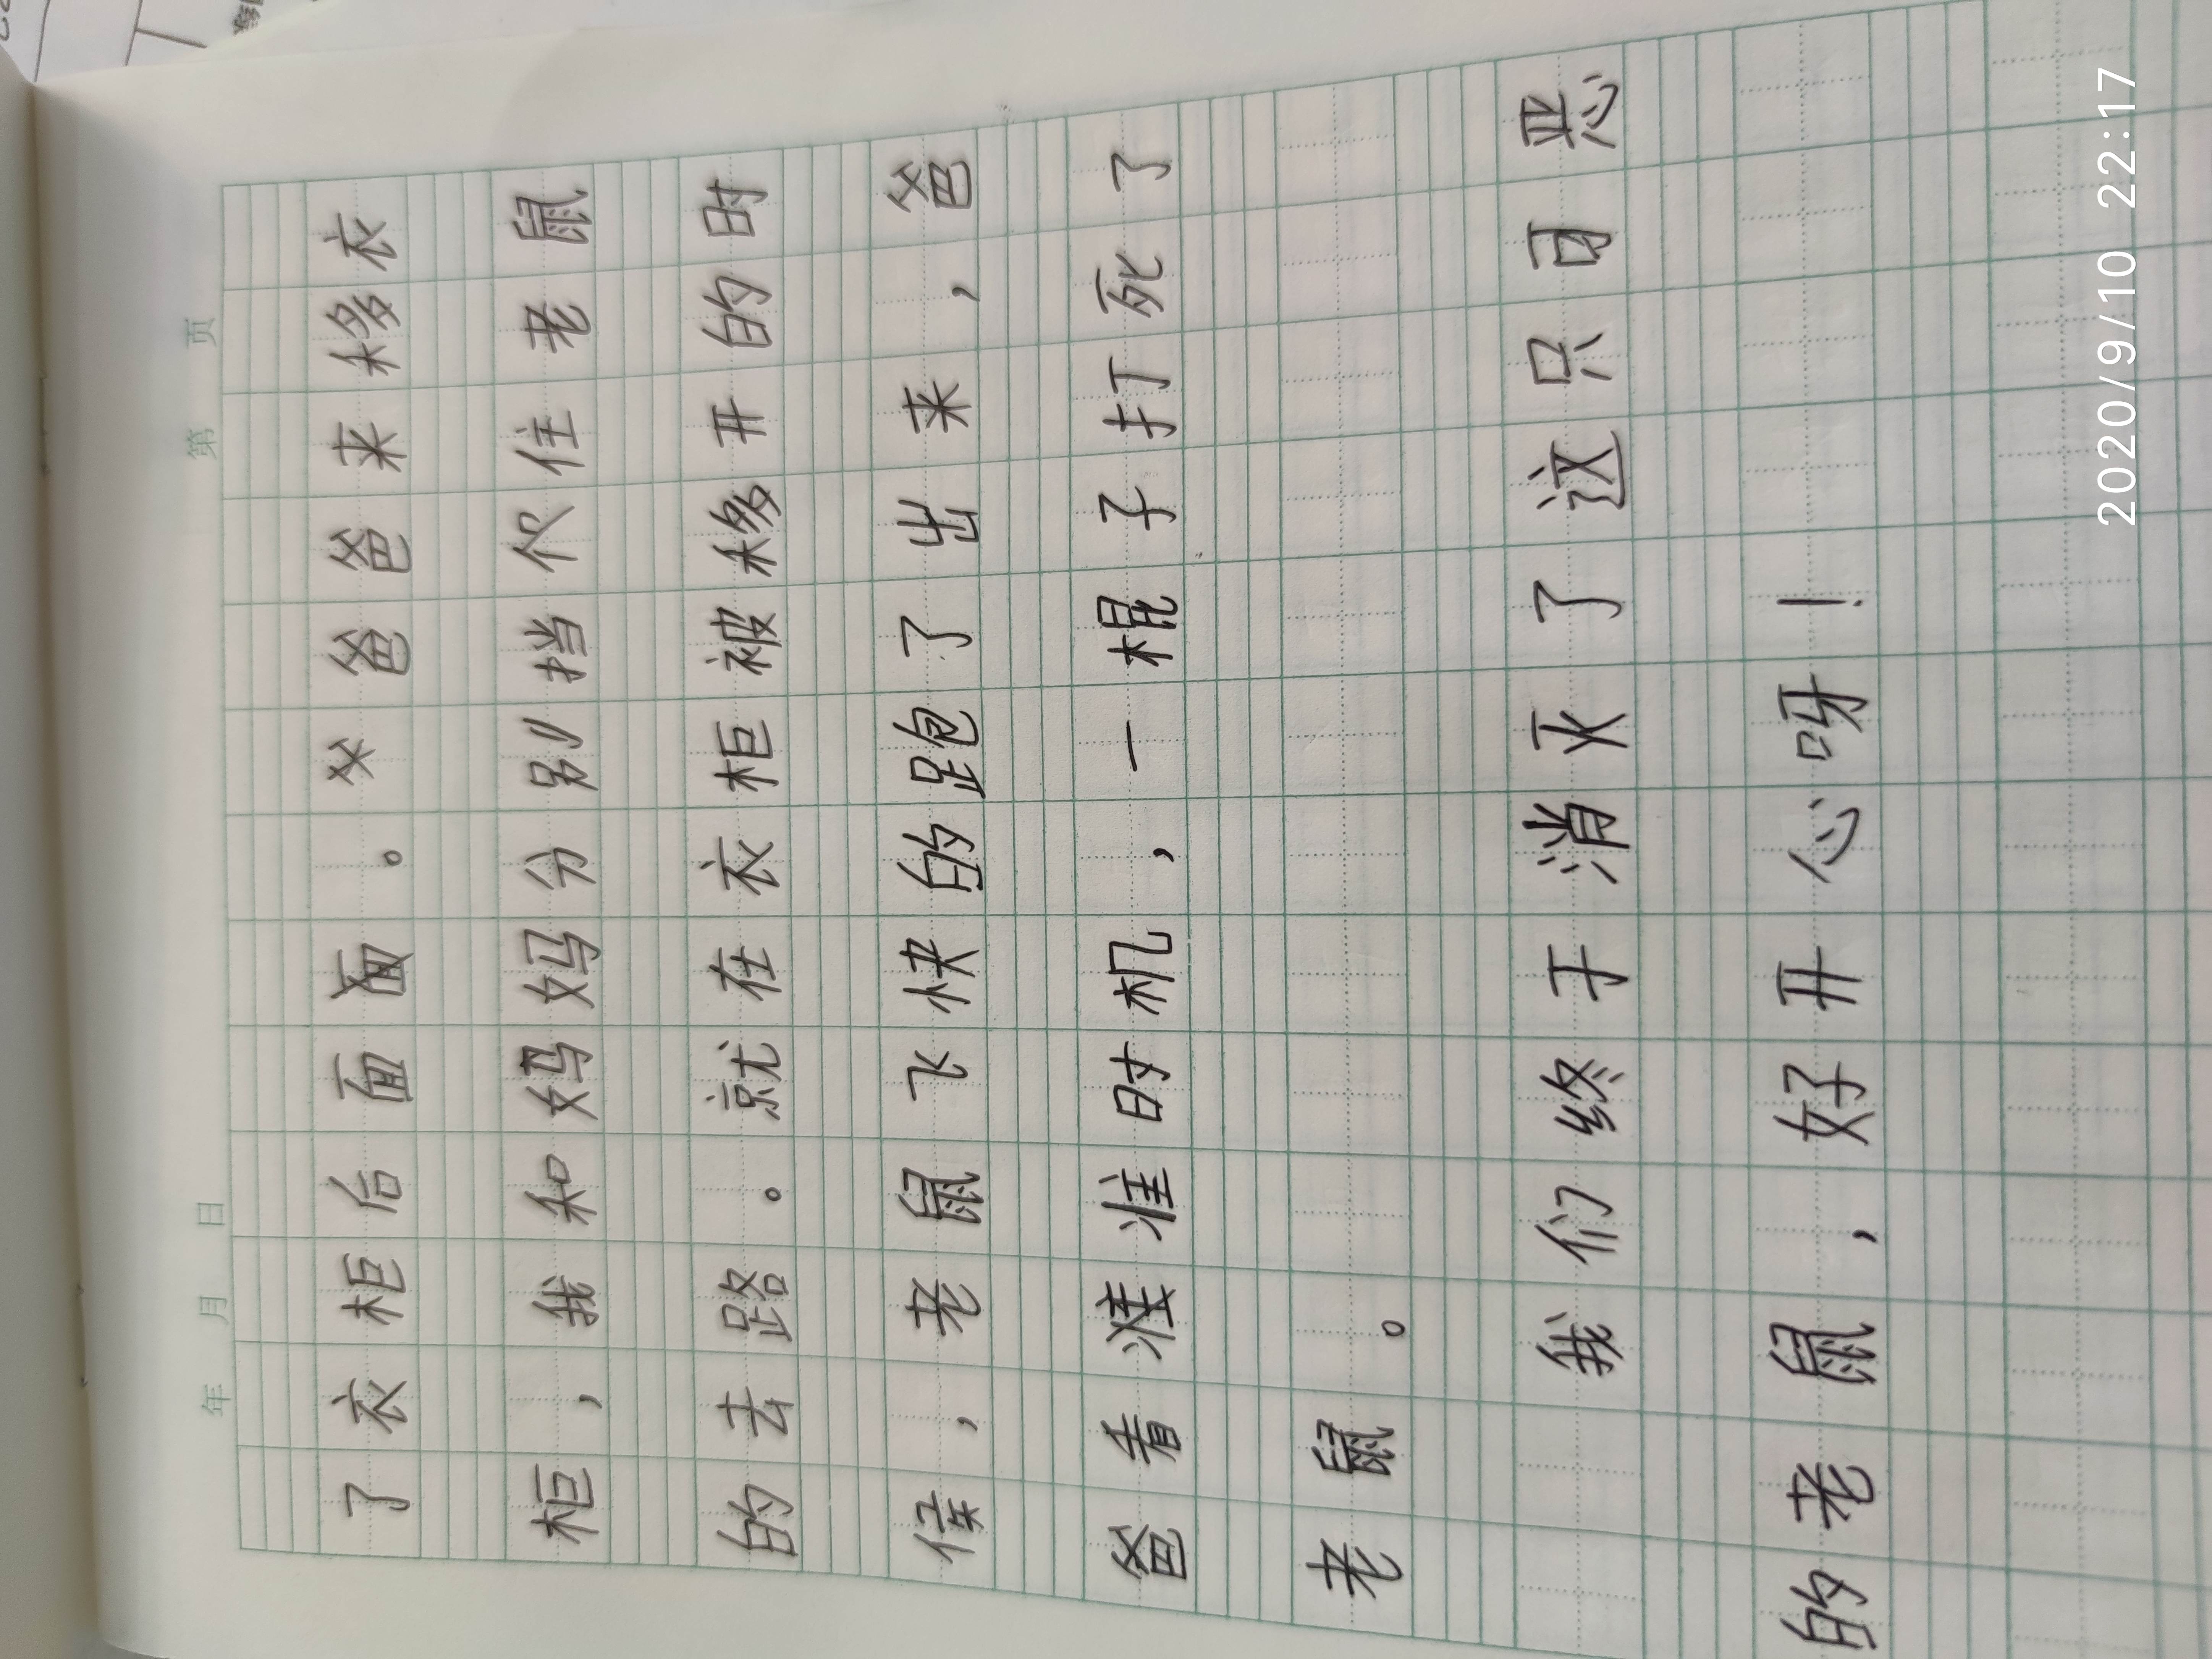 年 月 日 第 页
了衣柜后面面。父爸爸来移衣
柜，我和妈妈分别挡个住老鼠
的去路。就在衣柜被移开的时
侯，老鼠飞快的跑了出来，爸
爸看准准时机，一棍子打死了
老鼠。
我们终于消灭了这只日恶
的老鼠，好开心呀！
2020/9/10 22:17